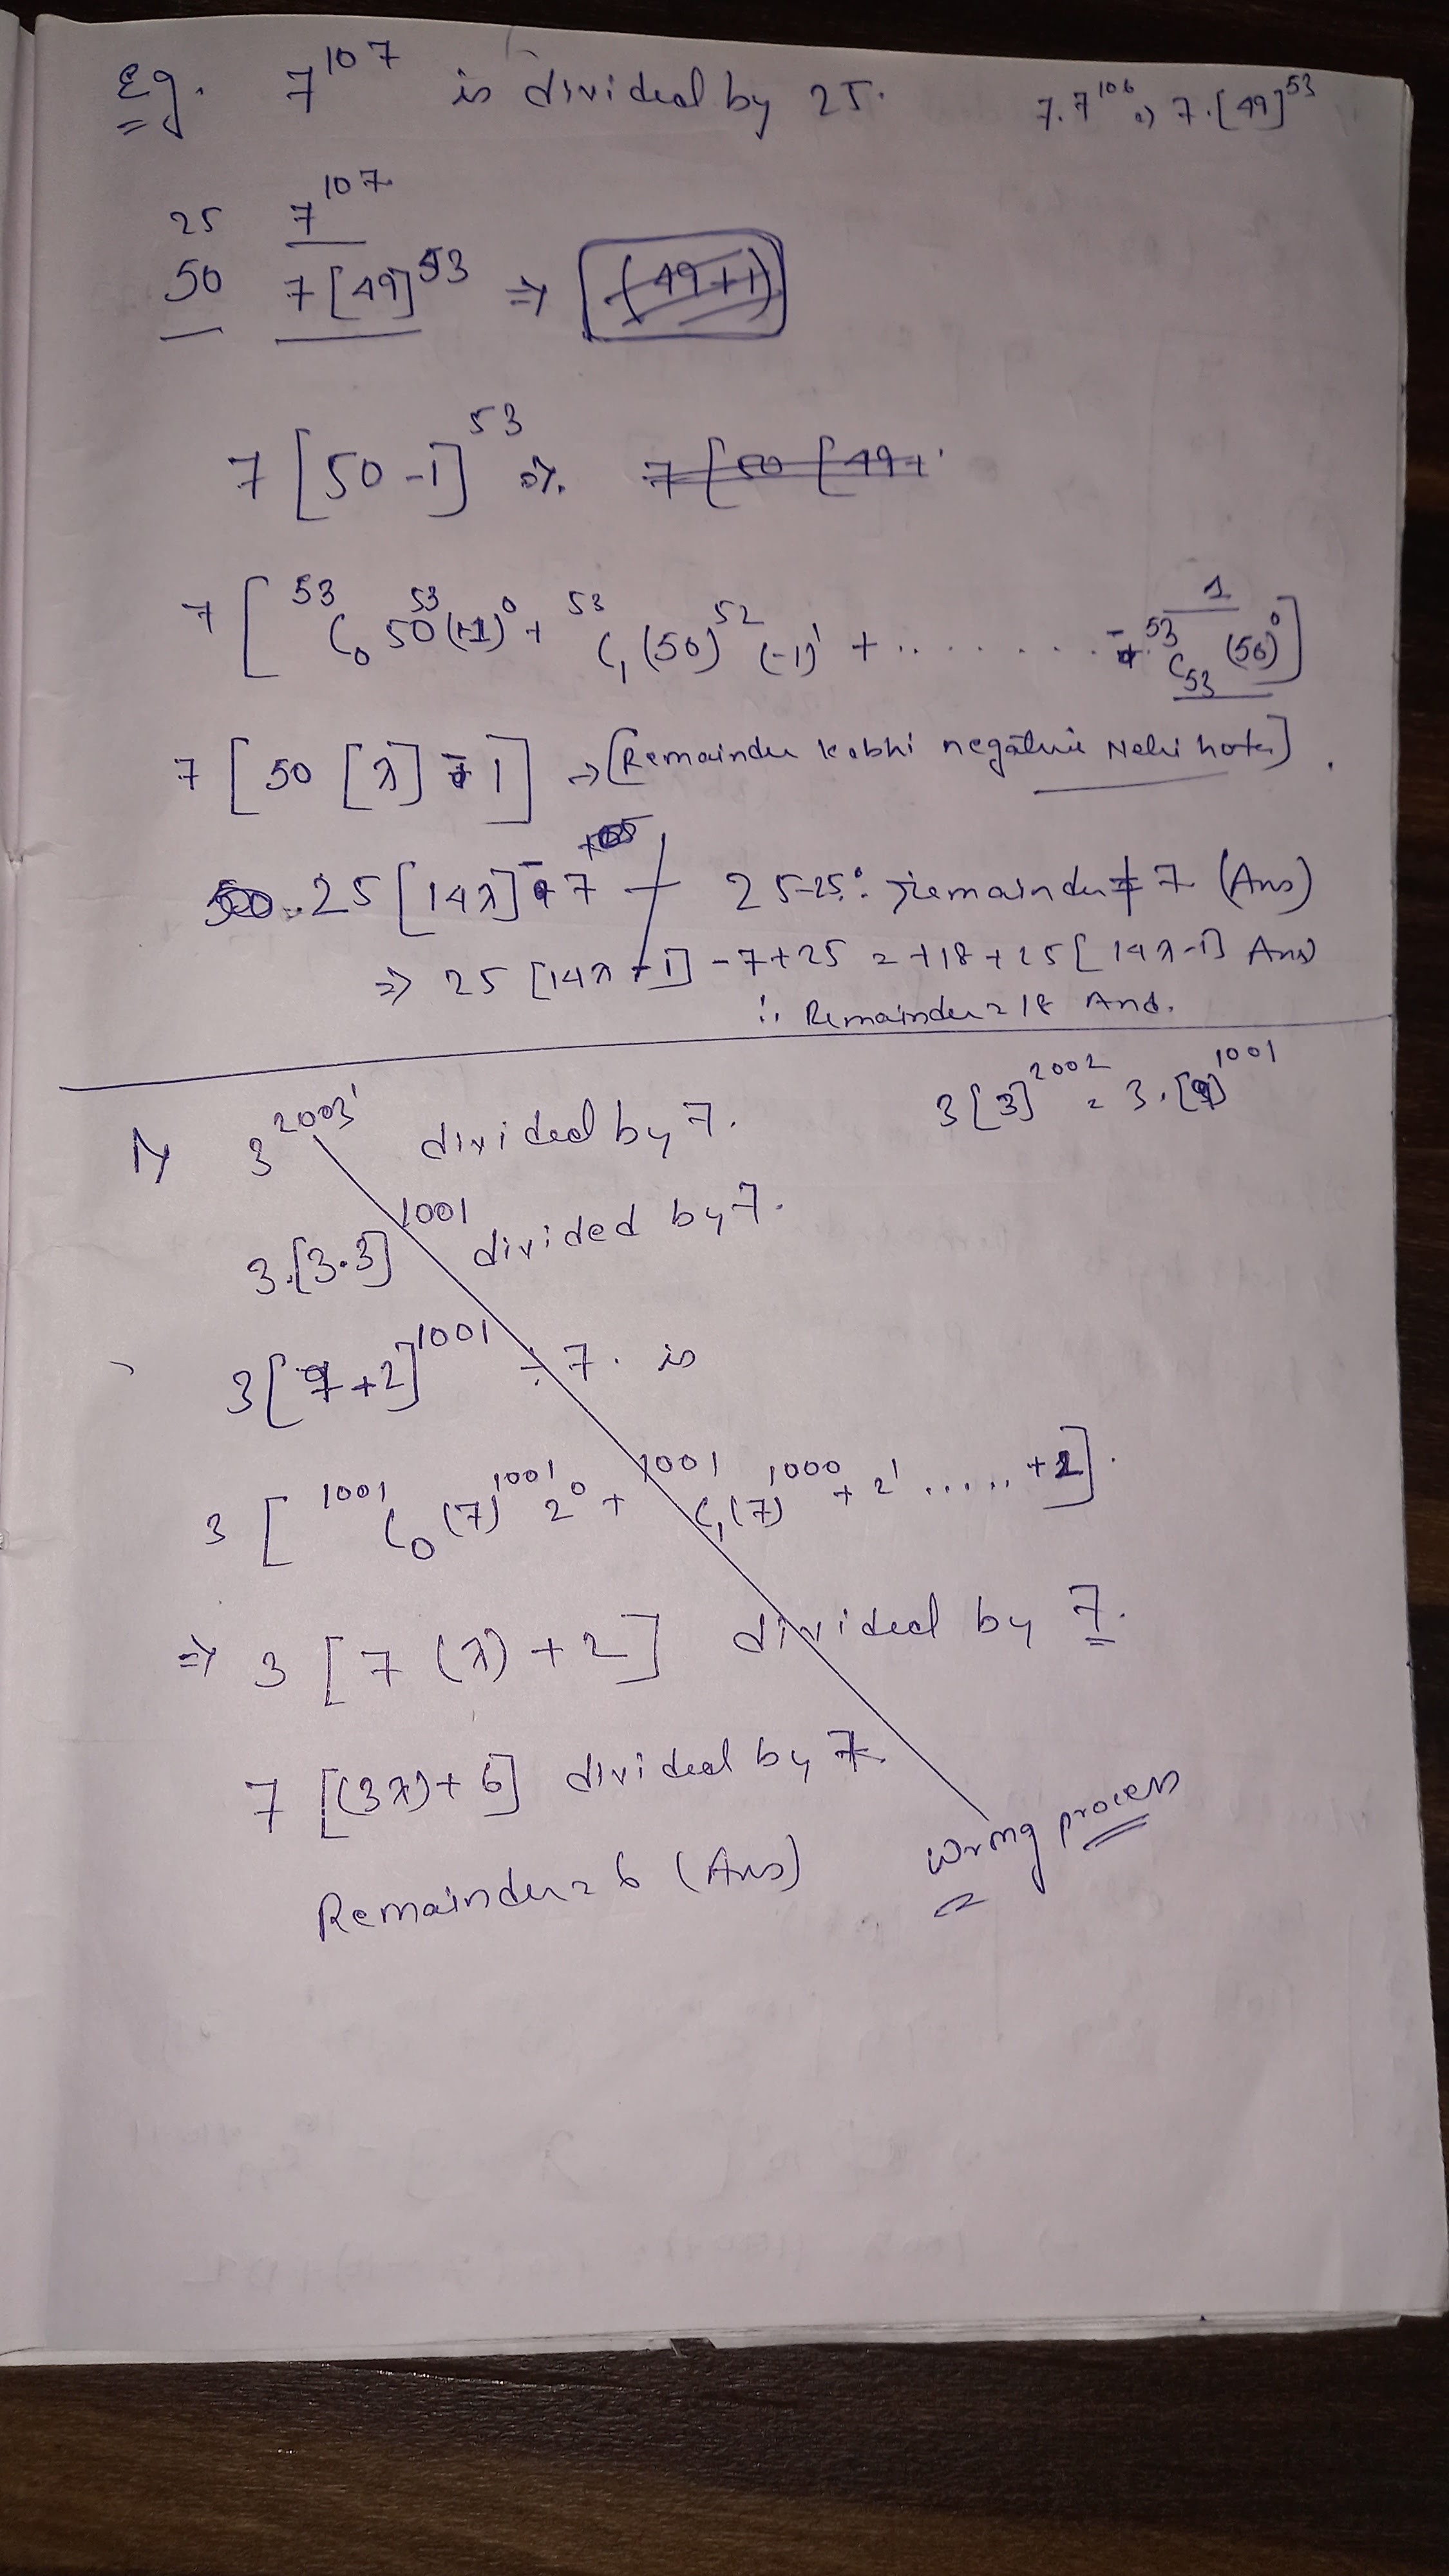 Eg. 7^107 is divided by 25. 7.7^106 => 7.[49]^53
25 7^107
50 7[49]^53 => (49+1)
7[50-1]^53
7[50 [49+
7[^53C_0 50^53(-1)^0 + ^53C_1(50)^52(-1)^1 + ........ - ^53C_53 (50)^0] 1
7[50[λ] - 1] => [Remainder kabhi negative Nahi hota].
25[14λ] - 7 25-25: remainder ≠ 7 (Ans)
=> 25[14λ-1] -7+25 = +18+25[14λ-1] Ans
∴ Remainder = 18 Ans.
3^2003 divided by 7. 3[3]^2002 = 3.[9]^1001
3.[3.3]^1001 divided by 7.
3[7+2]^1001 ÷ 7. is
3[^1001C_0 (7)^1001 2^0 + ^1001C_1(7)^1000 + 2^1 ...... +2].
=> 3[7(λ)+2] divided by 7.
7[(3λ)+6] divided by 7.
Remainder = 6 (Ans) Wrong process